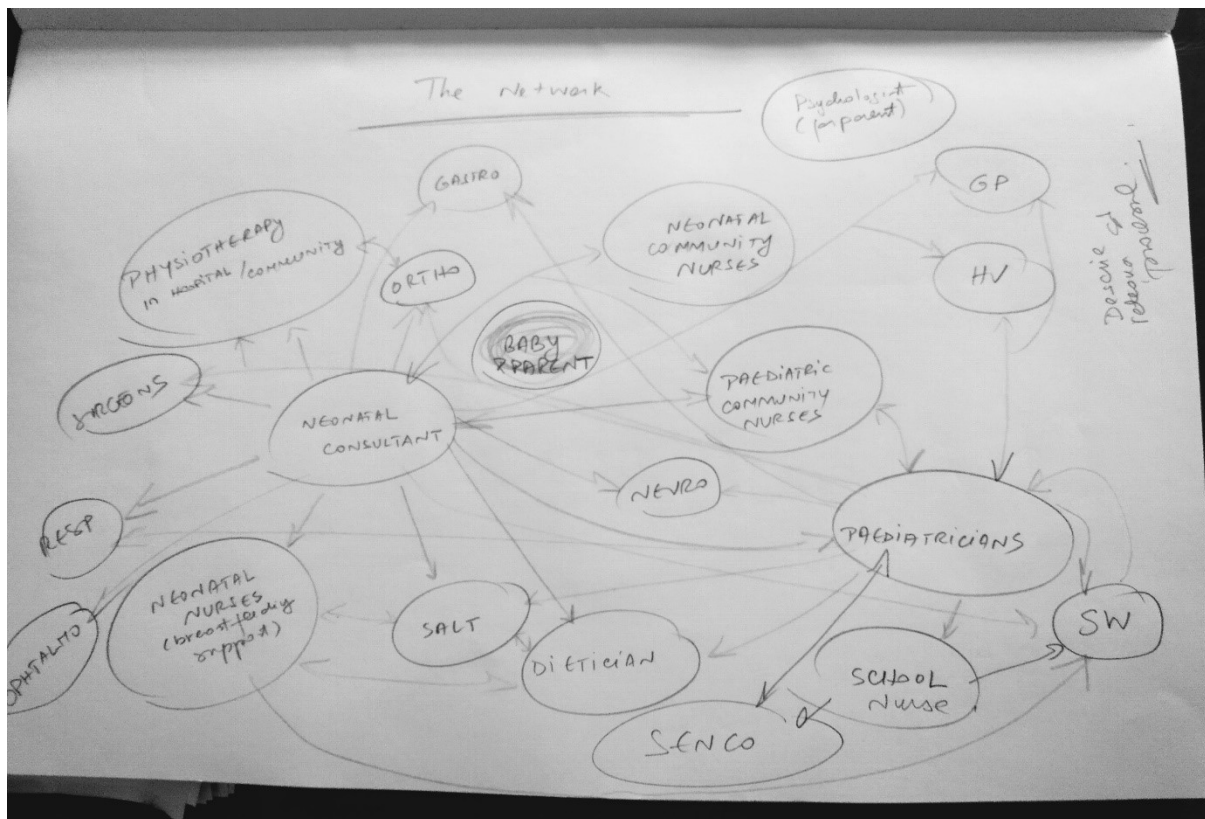 The Network
Psychologist
(for parent)
GASTRO
GP
PHYSIOTHERAPY
IN HOSPITAL / COMMUNITY
NEONATAL
COMMUNITY
NURSES
ORTHO
HV
BABY
PARENT
SURGEONS
NEONATAL
CONSULTANT
PAEDIATRIC
COMMUNITY
NURSES
NEURO
RESP
PAEDIATRICIANS
NEONATAL
NURSES
(breastfeeding
support)
SALT
DIETICIAN
OPHTALMO
SW
SCHOOL
Nurse
SENCO